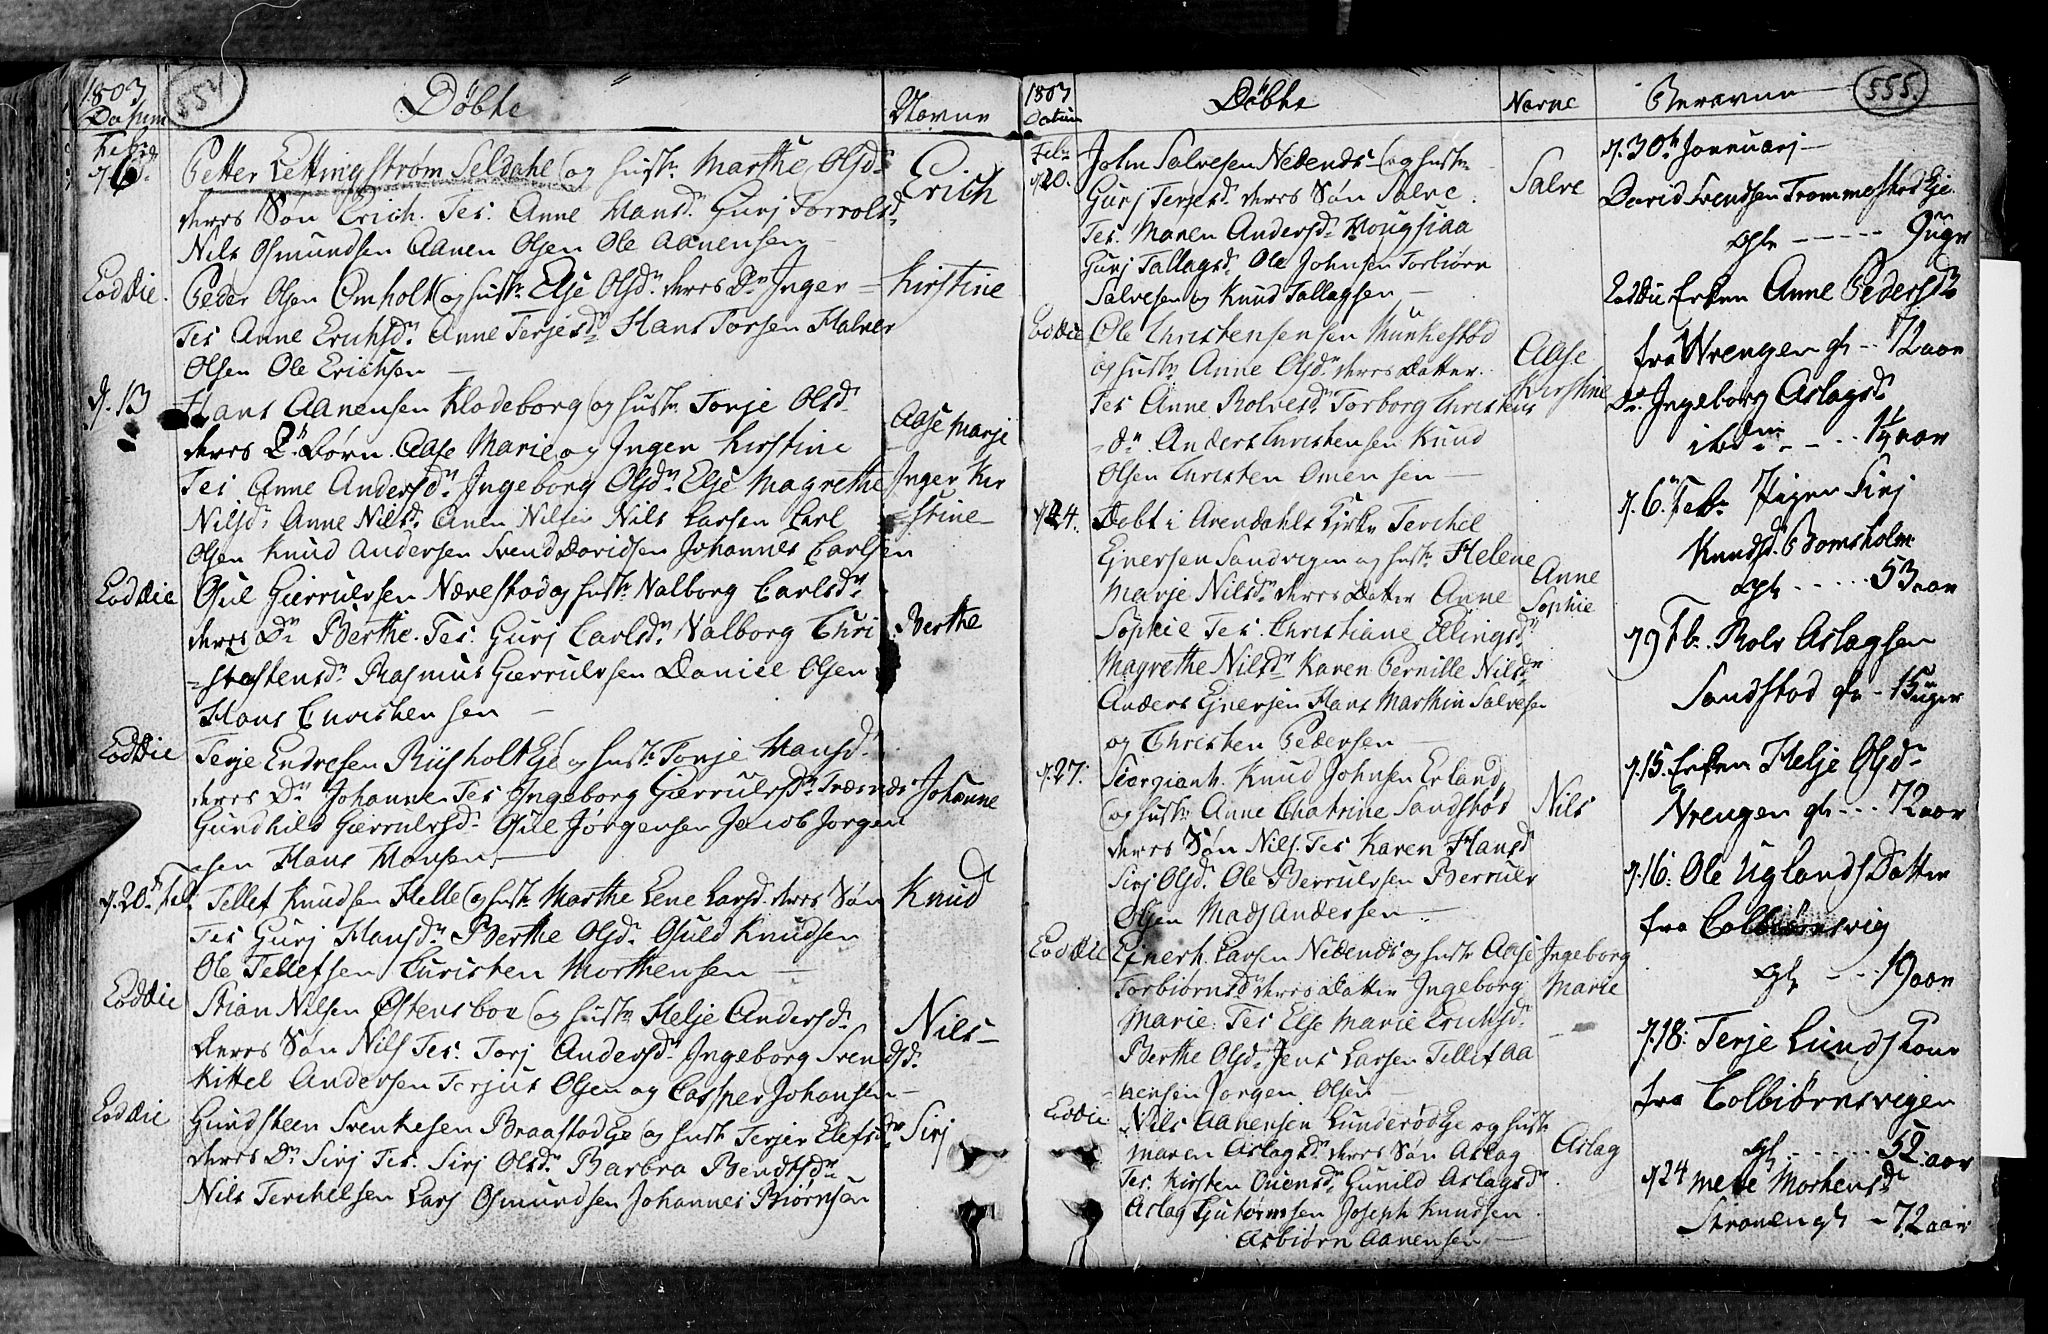 1803
554
Datum
Døbte
Navne
Febr
Petter Lettingstrom Seldahl og hustr Marthe Olsdr
Erich
deres Søn Erich. Tes. Anne Hansdr Gurj Torrolsdr
Nils Osmundsen Aanen Olsen Ole Aanensen
Eoddie
Peder Olsen Omholt og hustr Elje Olsdr deres Dr Inger
Kirstine
Tes Anne Erichsdr Anne Terjesdr Hans Torsen Halvor
Olsen Ole Erichsen
d. 13
Hans Aanensen Klodeborg og hustr Torje Olsdr
deres 2 Børn Aase Marie og Inger Kirstine
Aase Marje
Tes Anne Andersdr Ingeborg Olsdr Elje Magrethe
Inger Kir
Nilsdr Anne Nilsdr Anen Nilsen Nils Larsen Carl
stine
Olsen Knud Andersen Svend Davidsen Johannes Carlsen
Eoddie
Osul Gierrulvsen Nærestad og hustr Valborg Carlsdr
deres Dr Berthe. Tes. Gurj Carlsdr Valborg Chri
Berthe
stofensdr Rasmus Gierrulvsen Daniel Olsen
Hans Christensen
Eoddie
Terje Endresen Rusholt Eje og hustr Torje Hansdr
deres Dr Johanne Tes Ingeborg Gierrulvsdr Træsnæs
Johanne
Gundhild Gierrulvsdr Osul Jørgensen Jacob Jorgen
sen Hans Hansen
d. 20 Feb.
Tellef Knudsen Helle og hustr Marthe Lene Larsdr deres Søn
Knud
Tes Gurj Hansdr Berthe Olsdr Osuld Knudsen
Ole Tellefsen Christen Morthensen
Eoddie
Stian Nilsen Østensboe og hustr Helje Andersdr
Nils
deres Søn Nils Tes. Torj Andersdr Ingeborg Svendsdr
Kittel Andersen Terjus Olsen og Casper Johansen
Eoddie
Gundsteen Svenkesen Braastad Eje og hustr Terjer Elefsdr
Sirj
deres Dr Sirj Tes. Sirj Olsdr Barbra Bendtsdr
Nils Terchelsen Lars Osmundsen Johannes Biørnsen
1803
Datum
Døbte
Navne
Begravne
555.
Febr
d. 20.
John Salvesen Nedenes og hustr
Salve
Gurj Terjesdr deres Søn Salve
Tes. Maren Andersdr Hougsiaa
Gurj Tallagsdr Ole Johnsen Torbiørn
Salvesen og Knud Tallagsen
Eoddie
Ole Christensen Munkestad
Aase
og hustr Anne Olsdr deres Datter
Kirstine
Tes Anne Rolvesdr Torborg Christens
dr Anders Christensen Knud
Olsen Christen Omensen
d. 24.
Døbt i Arendahls Kirke Terchel
Ejnersen Sandvigen og hustr Helene
Anne
Marje Nilsdr deres Datter Anne
Sophie
Sophie Tes. Christiane Ellingsdr
Magrethe Nilsdr Karen Pernille Nilsdr
Anders Ejnersen Hans Marthin Salvesen
og Christen Pedersen
d. 27.
Seargiant Knud Johnsen Erland
og hustr Anne Chatrine Sandstøs
Nils
deres Søn Nils. Tes Karen Hansd
Sirj Olsdr Ole Berrulvsen Berrulv
Olsen Mads Andersen
Eoddie
Ejnert Larsen Nedenes og hustr Aase
Ingeborg
Torbiørnsdr deres Datter Ingeborg
Marie
Marie. Tes Else Marie Erichsdr
Berthe Olsdr Jens Larsen Tellef Aa
nensen Jorgen Olsen
Eoddie
Nils Aanensen Lunderød Eje og hustr
Aslag
Maren Aslagsdr deres Søn Aslag
Tes. Kirsten Ouensdr Gunild Aslagsdr
Aslag Gutormsen Joseph Knudsen
Asbiørn Aanensen
d. 30 Januarj
David Svendsen Trommestad Eje
gl - - - - 9 uger
Eoddie Enken Anne Pedersdr
fra Vrengen gl - - 72 aar
Dr Ingeborg Aslagsdr
ibdm - - - 1 1/4 aar
d. 6 Febr Pigen Sirj
Knudsdr Bomsholm
gl - - - - 53 aar
d 9 Fb. Rolv Aslagsen
Sandstad gl - 15 uger
d. 15. Enken Helje Olsdr
Vrengen gl - - 72 aar
d. 16. Ole Uglands Datter
fra Colbiørnsvig
gl - - - 19 aar
d. 18. Terje Lunds Kone
fra Colbiørnsvigen
gl - - - - 52 aar
d 24 Mete Mortensdr
gl - 72 aar